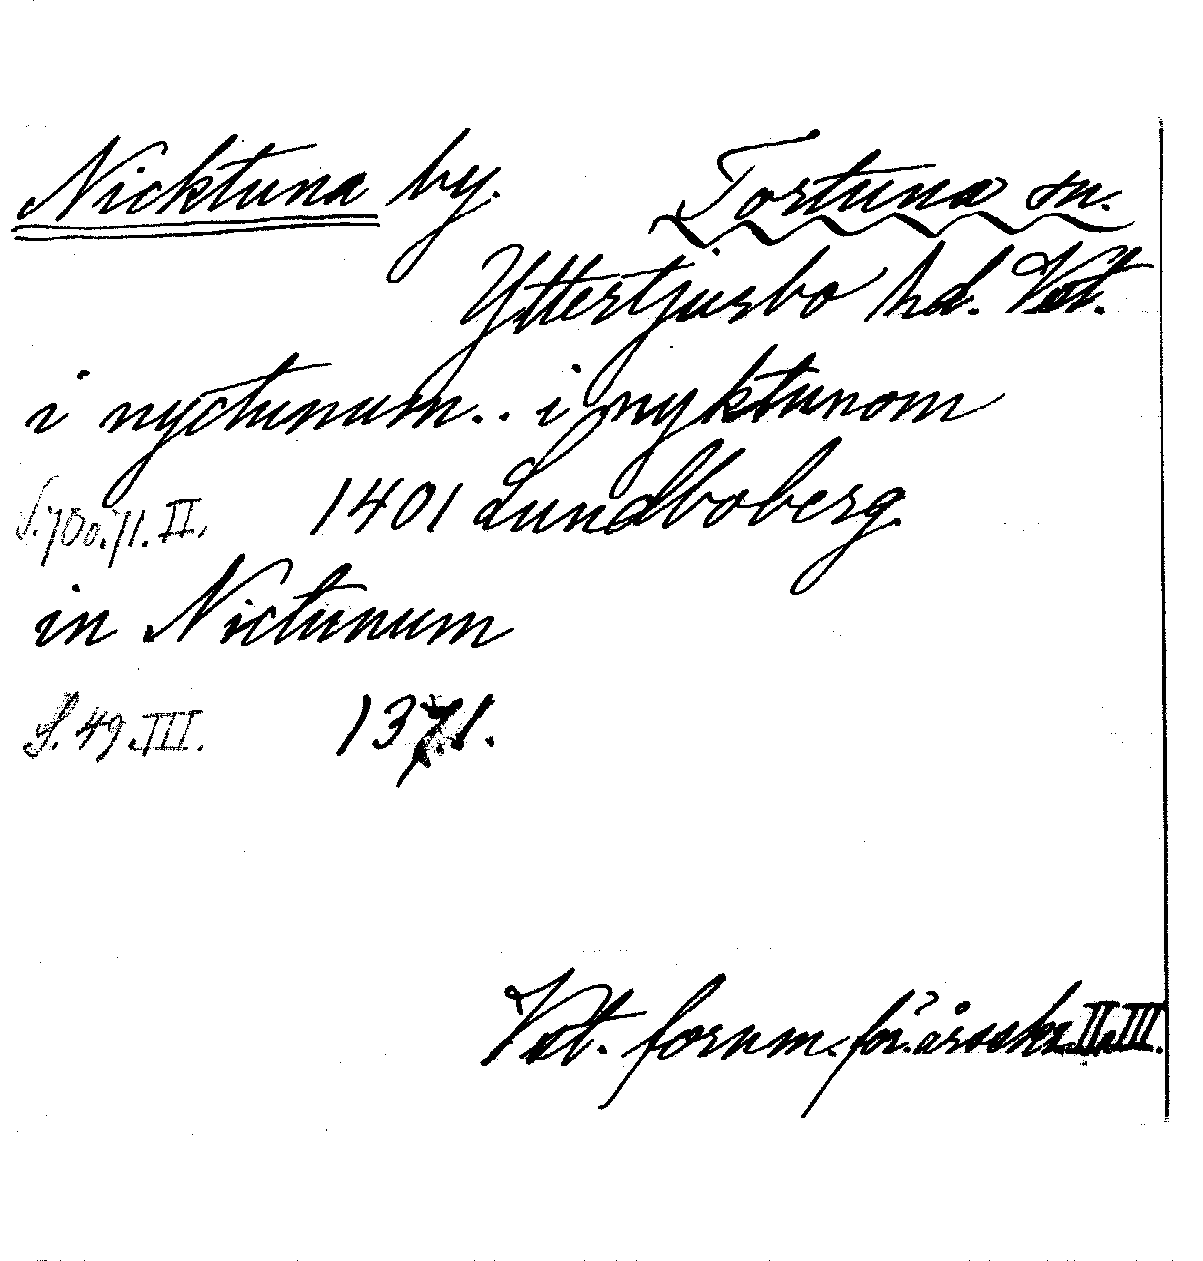 Nicktuna by. Tortuna sn.
Yttertjurbo hd. Vst.
i nyctunum.. i nyktunom
S. 70 o. 71. II. 1401 Lundboberg
in Nictunum
S. 49. III. 1371.
Vst. fornm. för. årsskr. II o. III.